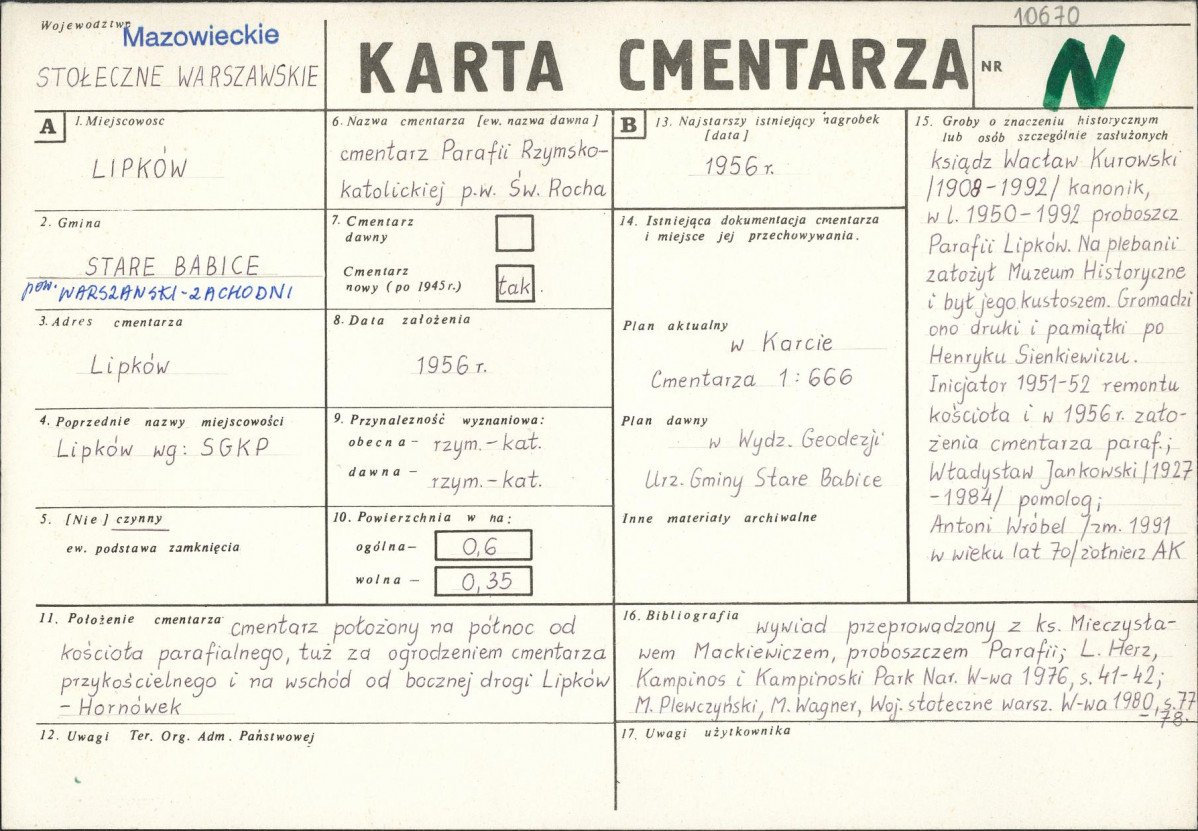 10670
Województwo
Mazowieckie
STOŁECZNE WARSZAWSKIE
KARTA CMENTARZA
NR
N
A
1. Miejscowosc
LIPKÓW
2. Gmina
STARE BABICE
pow. WARSZAWSKI-ZACHODNI
3. Adres cmentarza
Lipków
4. Poprzednie nazwy miejscowości
Lipków wg: SGKP
5. [Nie] czynny
ew. podstawa zamknięcia
6. Nazwa cmentarza [ew. nazwa dawna]
cmentarz Parafii Rzymsko-
katolickiej p.w. Św. Rocha
7. Cmentarz
dawny
Cmentarz
nowy (po 1945 r.)
tak
8. Data założenia
1956 r.
9. Przynależność wyznaniowa:
obecna – rzym.-kat.
dawna – rzym.-kat.
10. Powierzchnia w ha:
ogólna – 0,6
wolna – 0,35
11. Położenie cmentarza
cmentarz położony na północ od
kościoła parafialnego, tuż za ogrodzeniem cmentarza
przykościelnego i na wschód od bocznej drogi Lipków
– Hornówek
12. Uwagi Ter. Org. Adm. Państwowej
B
13. Najstarszy istniejący nagrobek
[data]
1956 r.
14. Istniejąca dokumentacja cmentarza
i miejsce jej przechowywania.
Plan aktualny
w Karcie
Cmentarza 1:666
Plan dawny
w Wydz. Geodezji
Urz. Gminy Stare Babice
Inne materiały archiwalne
15. Groby o znaczeniu historycznym
lub osób szczególnie zasłużonych
ksiądz Wacław Kurowski
/1908-1992/ kanonik,
w l. 1950-1992 proboszcz
Parafii Lipków. Na plebanii
założył Muzeum Historyczne
i był jego kustoszem. Gromadzi
ono druki i pamiątki po
Henryku Sienkiewiczu.
Inicjator 1951-52 remontu
kościoła i w 1956 r. zało-
żenia cmentarza paraf.;
Władysław Jankowski /1927
-1984/ pomolog;
Antoni Wróbel /zm. 1991
w wieku lat 70/ żołnierz AK
16. Bibliografia
wywiad przeprowadzony z ks. Mieczysła-
wem Mackiewiczem, proboszczem Parafii; L. Herz,
Kampinos i Kampinoski Park Nar. W-wa 1976, s. 41-42;
M. Plewczyński, M. Wagner, Woj. stołeczne warsz. W-wa 1980, s. 77
-78.
17. Uwagi użytkownika